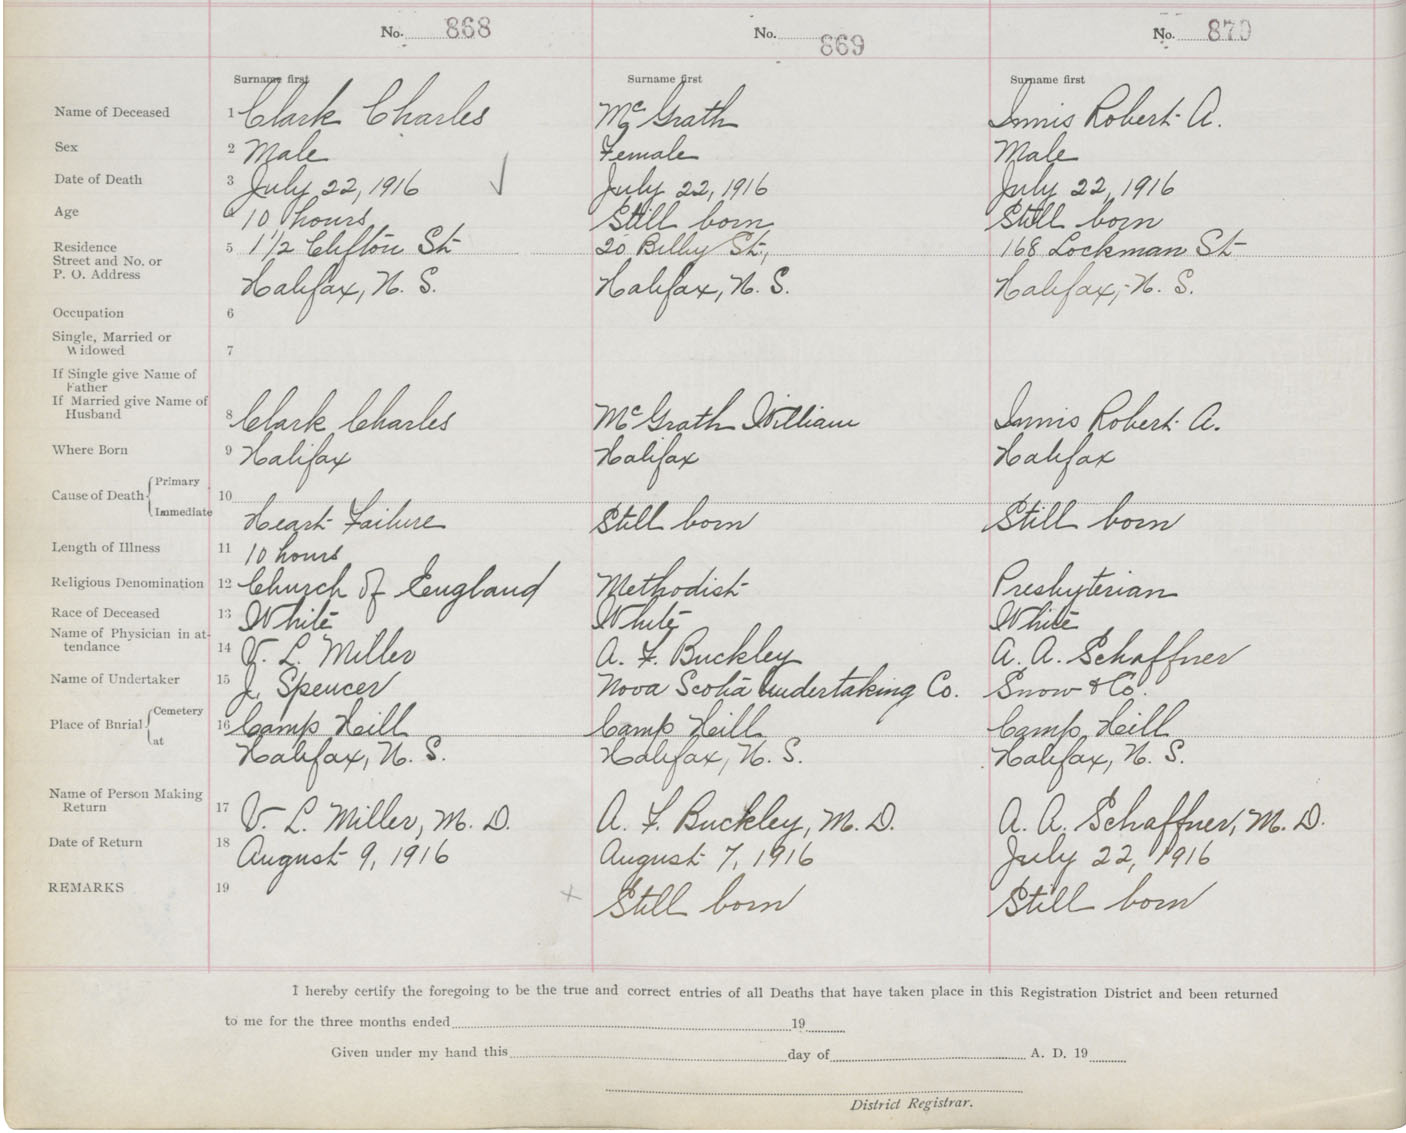 No. 868 No. 869 No. 870
Surname first Surname first Surname first
Name of Deceased 1 Clark Charles McGrath Innis Robert A.
Sex 2 Male Female Male
Date of Death 3 July 22, 1916 July 22, 1916 July 22, 1916
Age 4 10 hours Still born Still born
Residence 5 1 1/2 Clifton St 20 Bilby St., 168 Lockman St
Street and No. or
P. O. Address Halifax, N. S. Halifax, N. S. Halifax, N. S.
Occupation 6
Single, Married or
Widowed 7
If Single give Name of
Father
If Married give Name of
Husband 8 Clark Charles McGrath William Innis Robert A.
Where Born 9 Halifax Halifax Halifax
Cause of Death Primary 10
Immediate Heart Failure Still born Still born
Length of Illness 11 10 hours
Religious Denomination 12 Church of England Methodist Presbyterian
Race of Deceased 13 White White White
Name of Physician in at-
tendance 14 V. L. Miller A. F. Buckley A. A. Schaffner
Name of Undertaker 15 J. Spencer Nova Scotia Undertaking Co. Snow & Co.
Place of Burial Cemetery 16 Camp Hill Camp Hill Camp Hill
at Halifax, N. S. Halifax, N. S. Halifax, N. S.
Name of Person Making
Return 17 V. L. Miller, M. D. A. F. Buckley, M. D. A. A. Schaffner, M. D.
Date of Return 18 August 9, 1916 August 7, 1916 July 22, 1916
REMARKS 19 Still born Still born
I hereby certify the foregoing to be the true and correct entries of all Deaths that have taken place in this Registration District and been returned
to me for the three months ended 19
Given under my hand this day of A. D. 19
District Registrar.